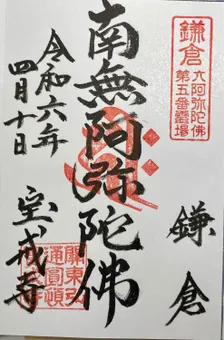 鎌倉
六阿弥陀佛
第五番霊場
鎌倉
南無阿弥陀佛
令和六年
四月十日
宝戒寺
關東弘
通圓頓